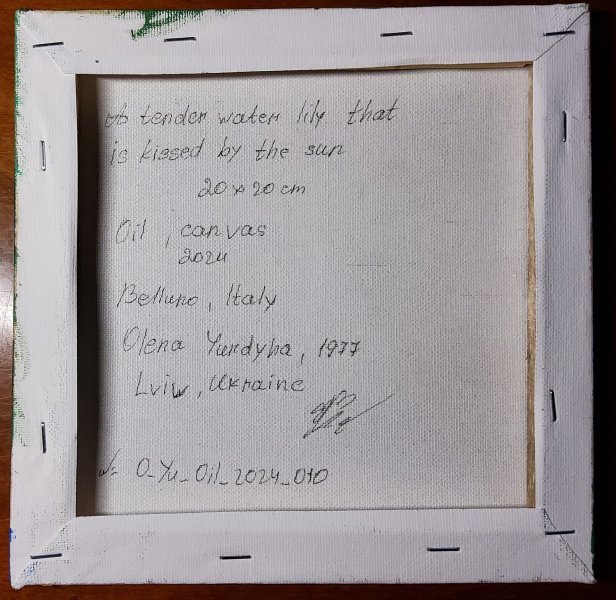 A tender water lily that
is kissed by the sun
20 x 20 cm
Oil, canvas
2024
Belluno, Italy
Olena Yurdyha, 1977
Lviv, Ukraine
O_Yu_Oil_2024_010